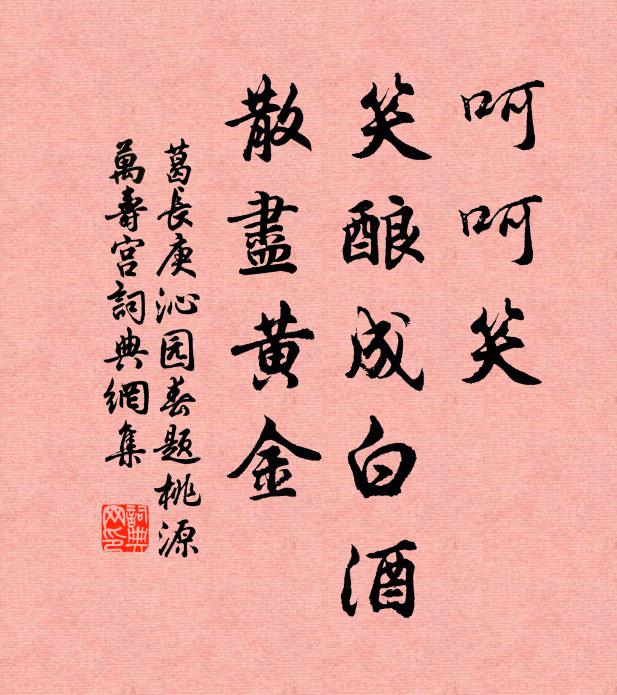 呵呵笑
笑酿成白酒
散盡黄金
葛長庚沁园春题桃源
萬壽宫詞典網集
詞典网印